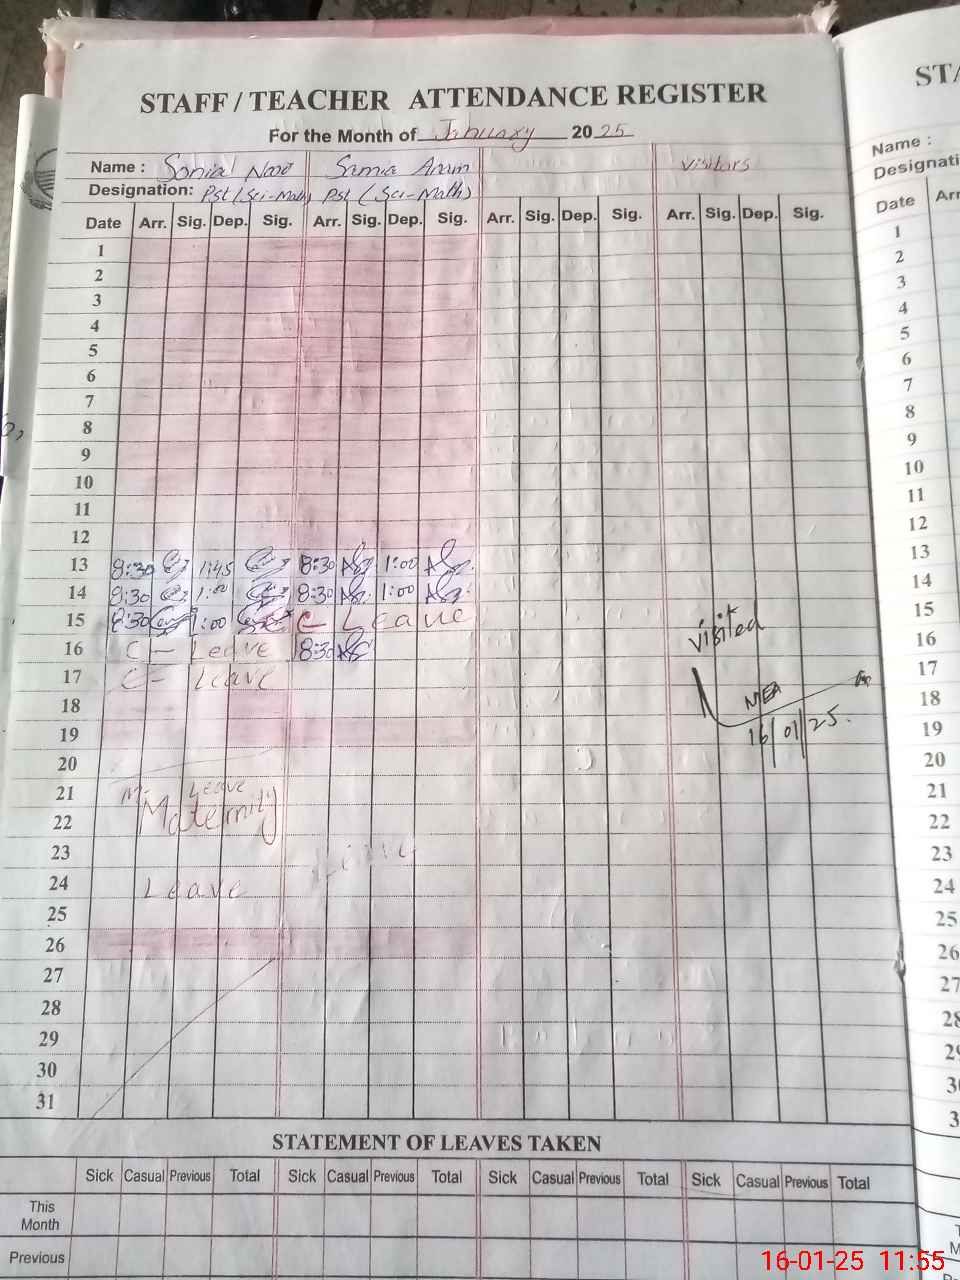 STAFF / TEACHER ATTENDANCE REGISTER
For the Month of January 2025
Name : Sonia Noor Samia Anum Visitors
Designation: Pst (Sci-Math) Pst (Sci-Math)
Date Arr. Sig. Dep. Sig. Arr. Sig. Dep. Sig. Arr. Sig. Dep. Sig. Arr. Sig. Dep. Sig.
1
2
3
4
5
6
7
8
9
10
11
12
13 8:30 1:45 8:30 1:00
14 8:30 1:00 8:30 1:00
15 8:30 1:00 C- Leave
16 C - Leave 8:30
17 C - Leave
18
19
20
21 M- Leave
22 Maternity
23
24 Leave
25
26
27
28
29
30
31
visited
MEA
16/01/25.
STATEMENT OF LEAVES TAKEN
Sick Casual Previous Total Sick Casual Previous Total Sick Casual Previous Total Sick Casual Previous Total
This Month
Previous
STA
Name :
Designati
Date Arr
1
2
3
4
5
6
7
8
9
10
11
12
13
14
15
16
17
18
19
20
21
22
23
24
25
26
27
28
29
30
3
16-01-25 11:55